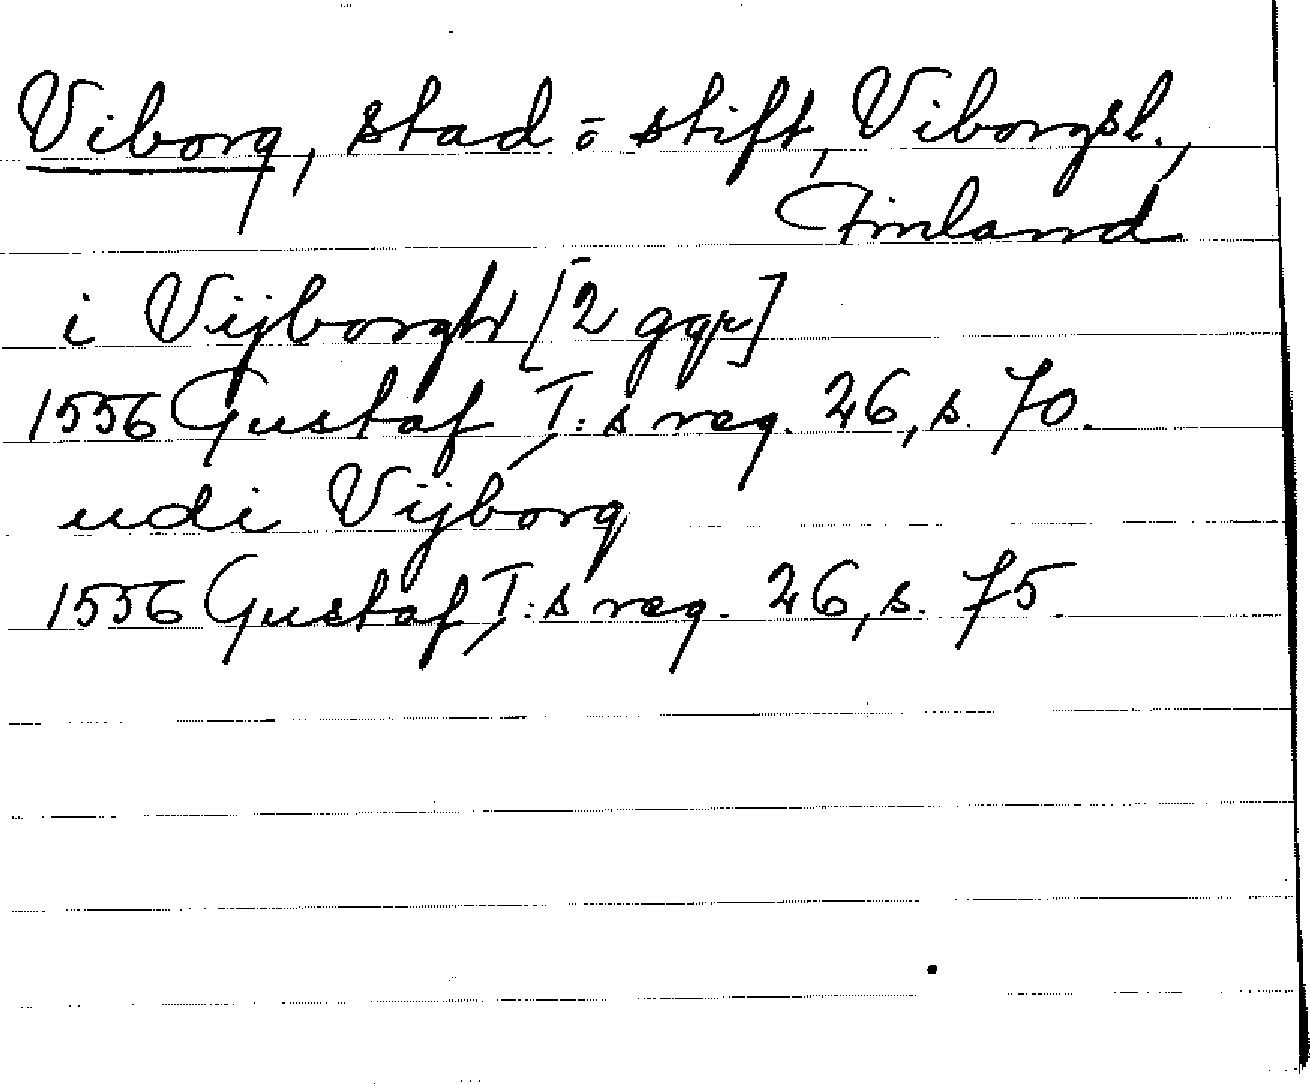 Viborg, stad o stift, Viborgsl.,
Finland
i Vijborgh [2 ggr]
1556 Gustaf I:s reg. 26, s. 70.
udi Vijborg
1556 Gustaf I:s reg. 26, s. 75.